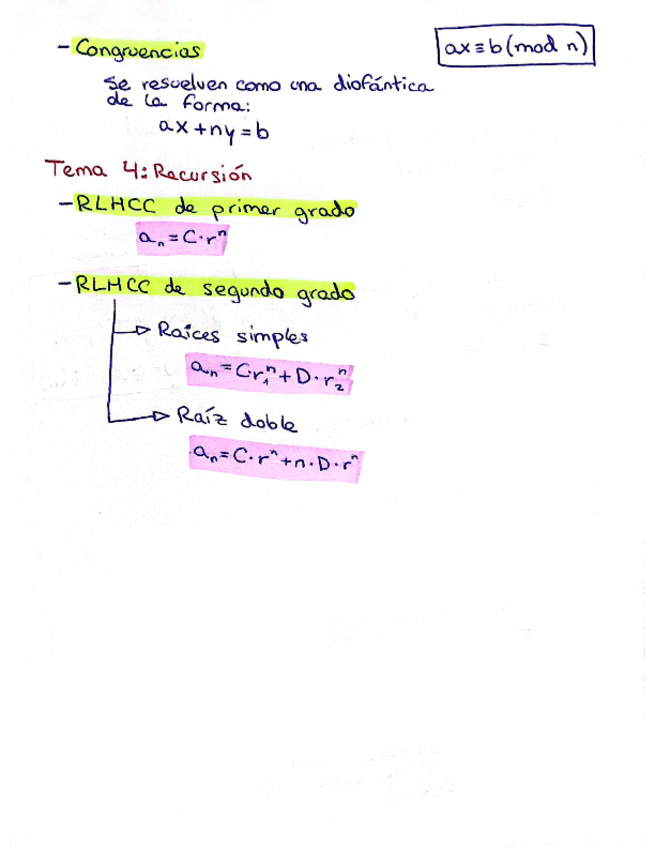 - Congruencias
ax ≡ b (mod n)
Se resuelven como una diofántica
de la forma:
ax + ny = b
Tema 4: Recursión
- RLHCC de primer grado
aₙ = C·rⁿ
- RLHCC de segundo grado
Raíces simples
aₙ = C·r₁ⁿ + D·r₂ⁿ
Raíz doble
aₙ = C·rⁿ + n·D·rⁿ